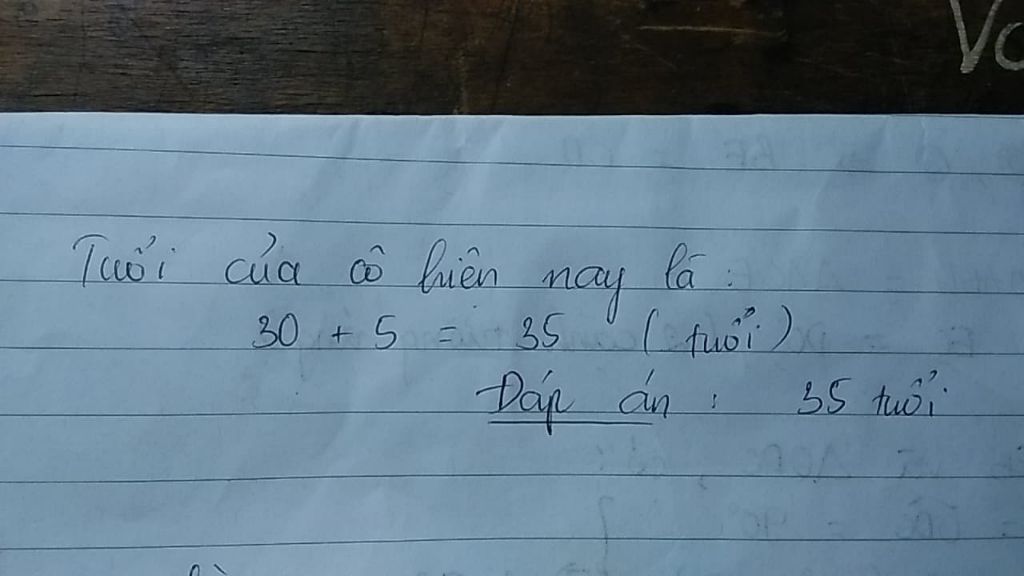 Vo
Tuổi của cô hiện nay là :
30 + 5 = 35 ( tuổi )
Đáp án : 35 tuổi